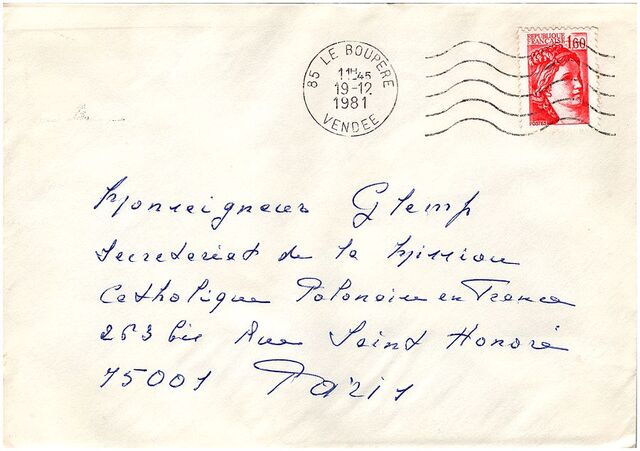 85 LE BOUPÈRE
11H45
19-12
1981
VENDEE
REPUBLIQUE
FRANÇAISE 1,60
POSTES
Monseigneur Glemp
Secretariat de la Mission
Catholique Polonaise en France
263 bis Rue Saint Honoré
75001 Paris